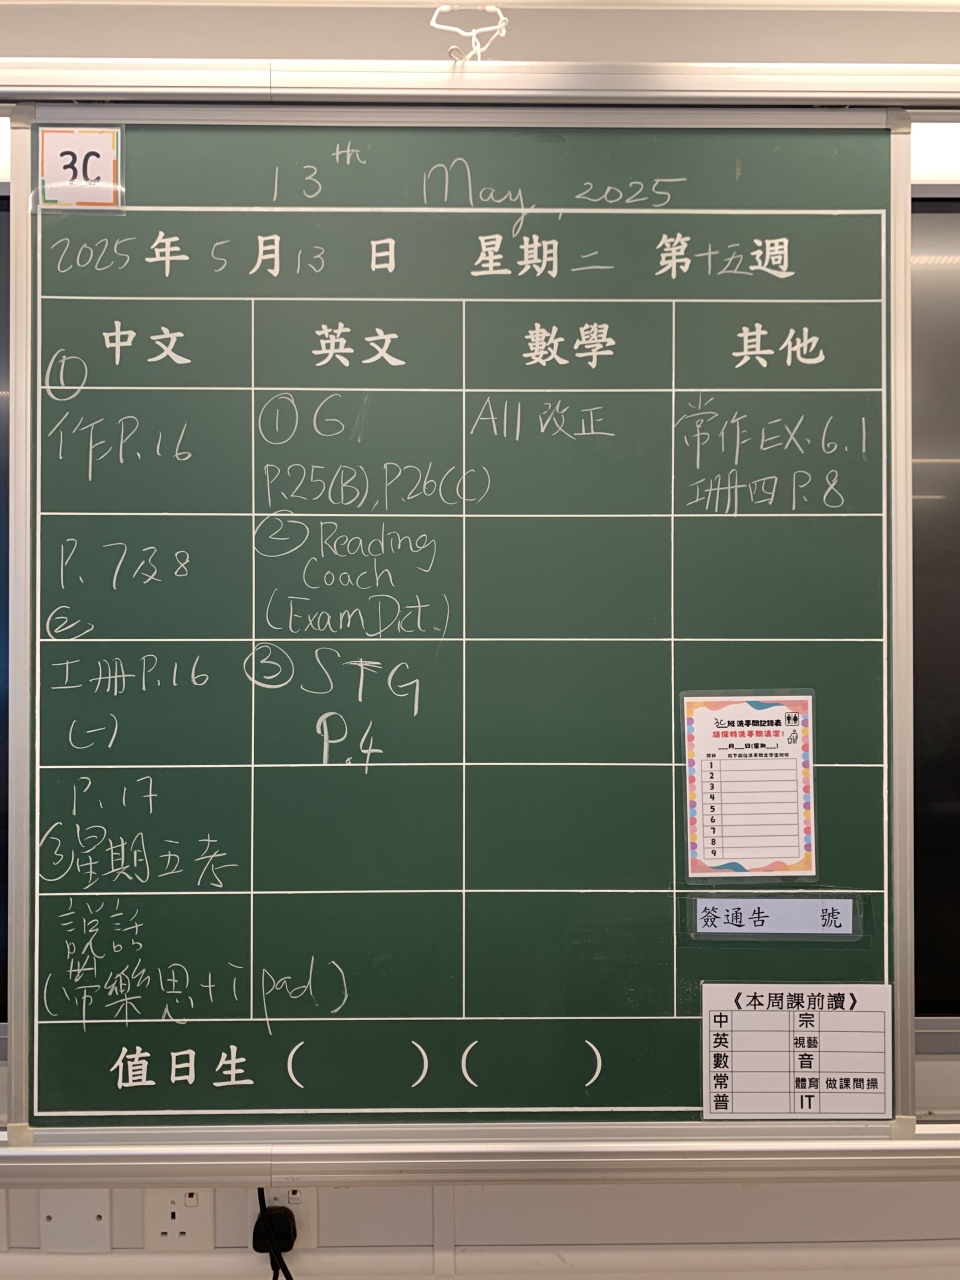 3C
13th May, 2025
2025年5月13日 星期二 第十五週
中文 英文 數學 其他
①
作P.16
P.7及8
②
工冊P.16
(一)
P.17
③星期五考
說話
(帶樂思+ipad)
① G
P.25(B), P.26(C)
② Reading
Coach
(Exam Dict.)
③ STG
P.4
All 改正
常作EX.6.1
工冊四P.8
3C班洗手間記錄表
請保持洗手間清潔!
___月___日(星期___)
1
2
3
4
5
6
7
8
9
簽通告 號
《本周課前讀》
中 宗
英 視藝
數 音
常 體育 做課間操
普 IT
值日生 ( ) ( )